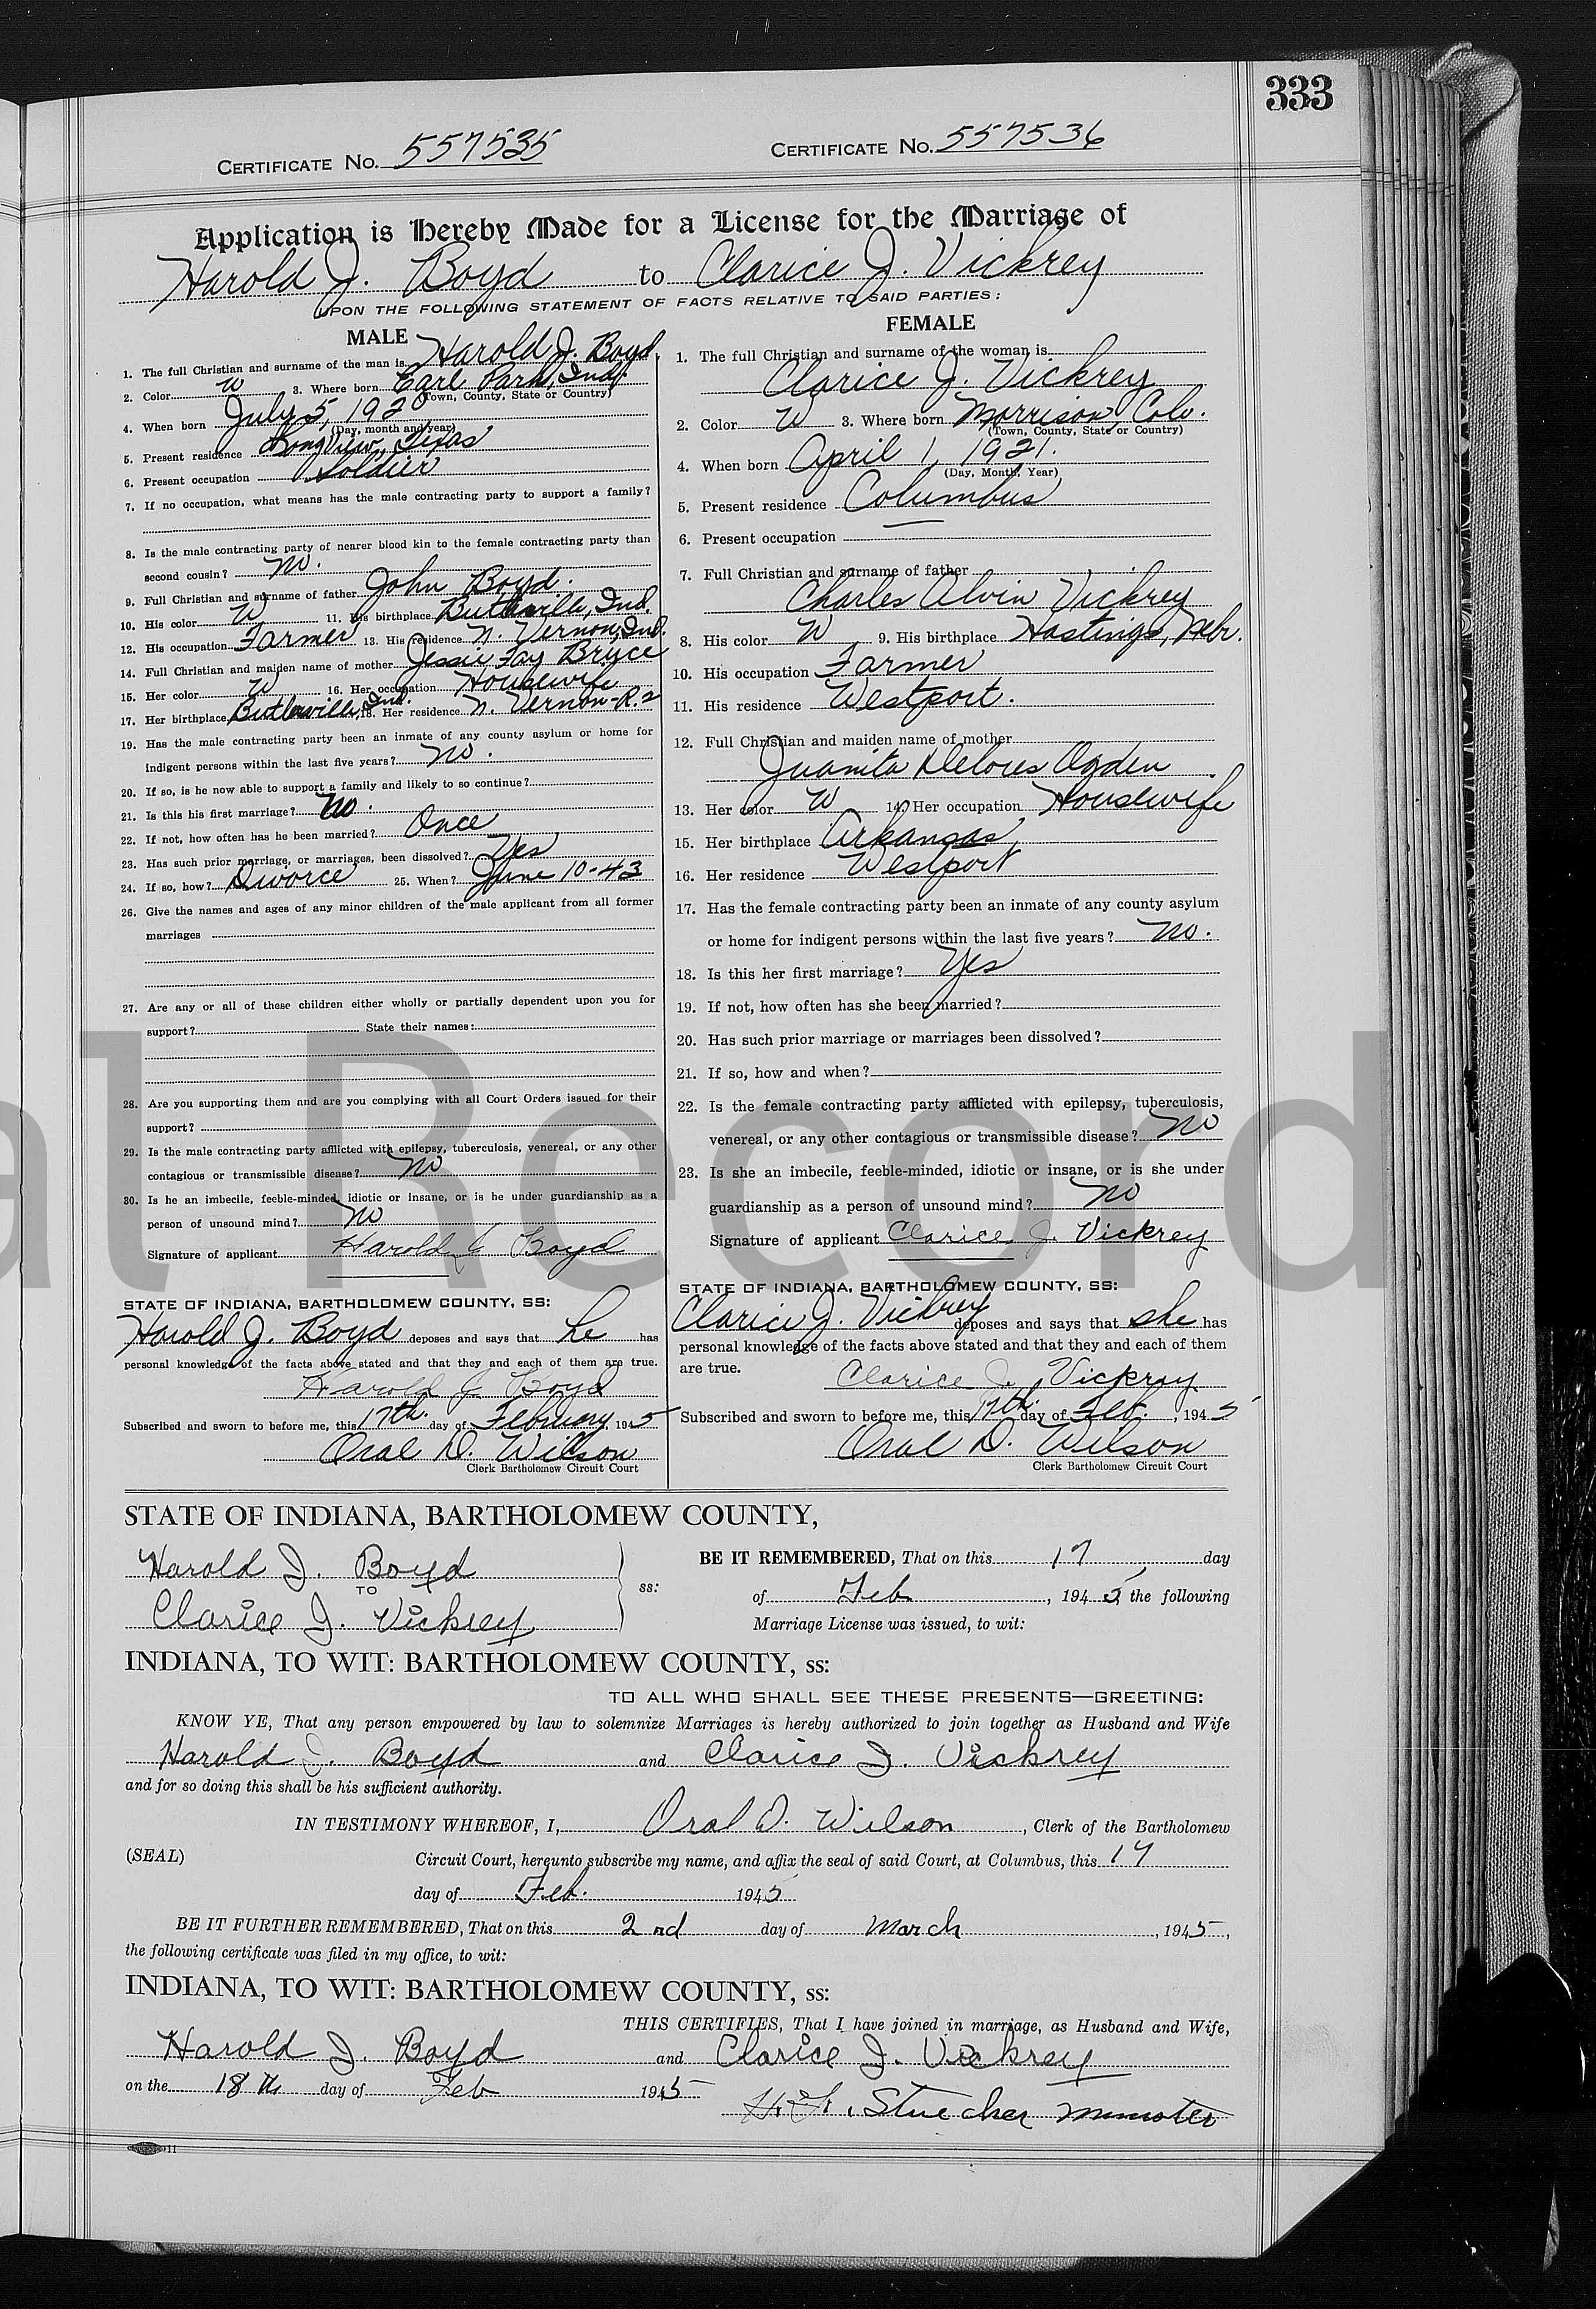 333
CERTIFICATE NO. 557535 CERTIFICATE NO. 557536
Application is Hereby Made for a License for the Marriage of
Harold J. Boyd to Clarice J. Vickrey
UPON THE FOLLOWING STATEMENT OF FACTS RELATIVE TO SAID PARTIES:
MALE
1. The full Christian and surname of the man is Harold J. Boyd
2. Color W 3. Where born Earl Park, Ind.
(Town, County, State or Country)
4. When born July 5, 1920
(Day, month and year)
5. Present residence Longview, Texas
6. Present occupation Soldier
7. If no occupation, what means has the male contracting party to support a family?
8. Is the male contracting party of nearer blood kin to the female contracting party than
second cousin? No.
9. Full Christian and surname of father John Boyd.
10. His color W 11. His birthplace Butlerville, Ind.
12. His occupation Farmer 13. His residence N. Vernon, Ind.
14. Full Christian and maiden name of mother Jessie Fay Bryce
15. Her color W 16. Her occupation Housewife
17. Her birthplace Butlerville, Ind. 18. Her residence N. Vernon-R.2
19. Has the male contracting party been an inmate of any county asylum or home for
indigent persons within the last five years? No.
20. If so, is he now able to support a family and likely to so continue?
21. Is this his first marriage? No.
22. If not, how often has he been married? Once
23. Has such prior marriage, or marriages, been dissolved? Yes
24. If so, how? Divorce 25. When? June 10-43
26. Give the names and ages of any minor children of the male applicant from all former
marriages
27. Are any or all of these children either wholly or partially dependent upon you for
support? State their names:
28. Are you supporting them and are you complying with all Court Orders issued for their
support?
29. Is the male contracting party afflicted with epilepsy, tuberculosis, venereal, or any other
contagious or transmissible disease? No
30. Is he an imbecile, feeble-minded, idiotic or insane, or is he under guardianship as a
person of unsound mind? No
Signature of applicant Harold J Boyd
STATE OF INDIANA, BARTHOLOMEW COUNTY, SS:
Harold J. Boyd deposes and says that he has
personal knowledge of the facts above stated and that they and each of them are true.
Harold J Boyd
Subscribed and sworn to before me, this 17th. day of February, 1945
Oral D. Wilson
Clerk Bartholomew Circuit Court
FEMALE
1. The full Christian and surname of the woman is
Clarice J. Vickrey
2. Color W 3. Where born Morrison, Colo.
(Town, County, State or Country)
4. When born April 1, 1921.
(Day, Month, Year)
5. Present residence Columbus
6. Present occupation —
7. Full Christian and surname of father
Charles Alvin Vickrey
8. His color W 9. His birthplace Hastings, Nebr.
10. His occupation Farmer
11. His residence Westport.
12. Full Christian and maiden name of mother
Juanita Delores Ogden
13. Her color W 14. Her occupation Housewife
15. Her birthplace Arkansas
16. Her residence Westport
17. Has the female contracting party been an inmate of any county asylum
or home for indigent persons within the last five years? No.
18. Is this her first marriage? Yes
19. If not, how often has she been married?
20. Has such prior marriage or marriages been dissolved?
21. If so, how and when?
22. Is the female contracting party afflicted with epilepsy, tuberculosis,
venereal, or any other contagious or transmissible disease? No
23. Is she an imbecile, feeble-minded, idiotic or insane, or is she under
guardianship as a person of unsound mind? No
Signature of applicant Clarice J. Vickrey
STATE OF INDIANA, BARTHOLOMEW COUNTY, SS:
Clarice J. Vickrey deposes and says that she has
personal knowledge of the facts above stated and that they and each of them
are true.
Clarice J. Vickrey
Subscribed and sworn to before me, this 17th. day of Feb., 1945
Oral D. Wilson
Clerk Bartholomew Circuit Court
al Record
STATE OF INDIANA, BARTHOLOMEW COUNTY,
Harold J. Boyd
TO
Clarice J. Vickrey
ss:
BE IT REMEMBERED, That on this 17 day
of Feb, 1945, the following
Marriage License was issued, to wit:
INDIANA, TO WIT: BARTHOLOMEW COUNTY, ss:
TO ALL WHO SHALL SEE THESE PRESENTS—GREETING:
KNOW YE, That any person empowered by law to solemnize Marriages is hereby authorized to join together as Husband and Wife
Harold J. Boyd and Clarice J. Vickrey
and for so doing this shall be his sufficient authority.
IN TESTIMONY WHEREOF, I, Oral D. Wilson, Clerk of the Bartholomew
(SEAL) Circuit Court, hereunto subscribe my name, and affix the seal of said Court, at Columbus, this 17
day of Feb. 1945
BE IT FURTHER REMEMBERED, That on this 2nd day of March, 1945,
the following certificate was filed in my office, to wit:
INDIANA, TO WIT: BARTHOLOMEW COUNTY, ss:
THIS CERTIFIES, That I have joined in marriage, as Husband and Wife,
Harold J. Boyd and Clarice J. Vickrey
on the 18th day of Feb 1945
Stuecher Minister
11